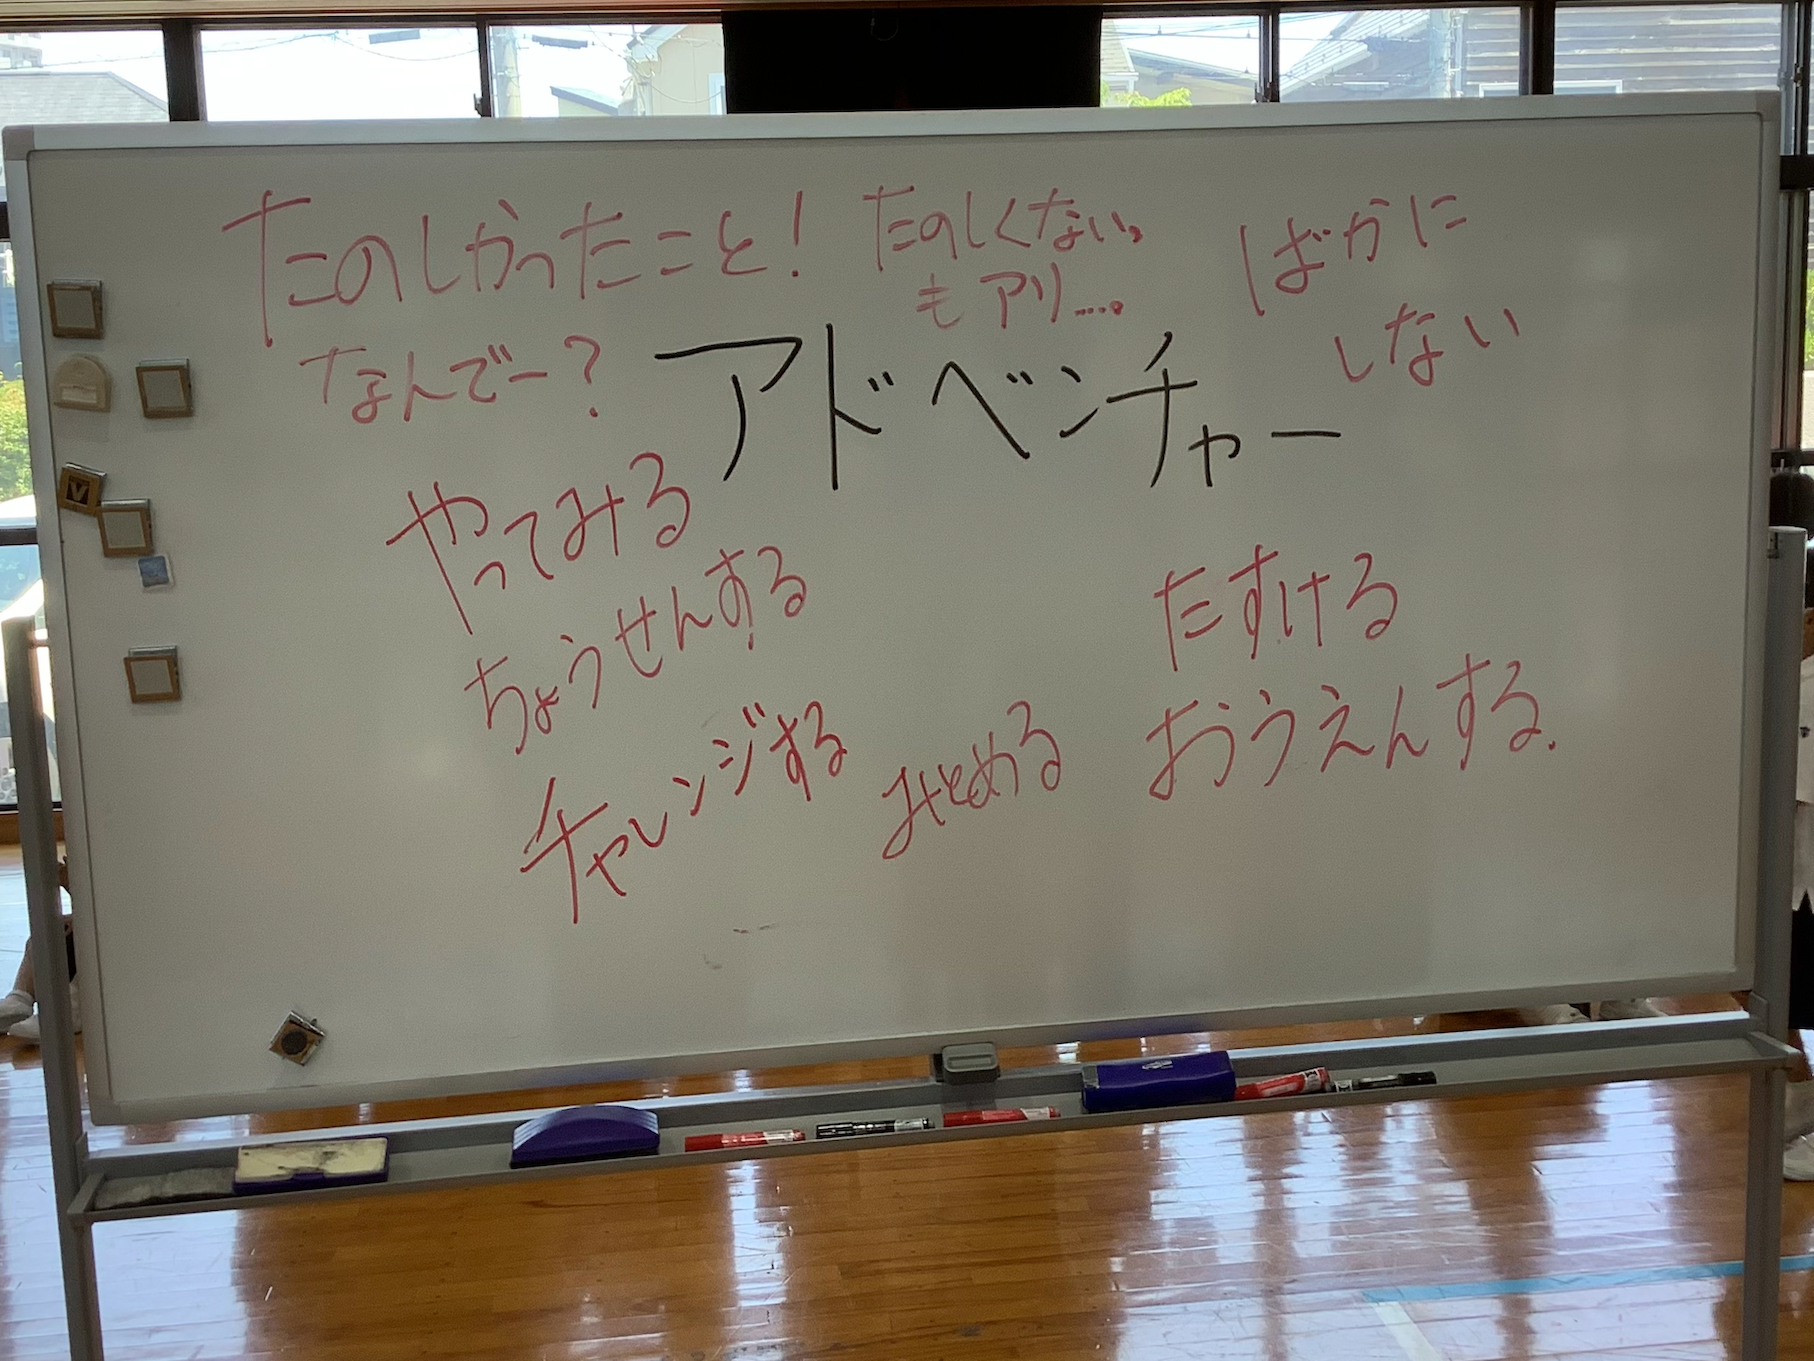 たのしかったこと!
なんでー?
たのしくない、
もアリ....。
ばかに
しない
アドベンチャー
やってみる
ちょうせんする
チャレンジする
みとめる
たすける
おうえんする.